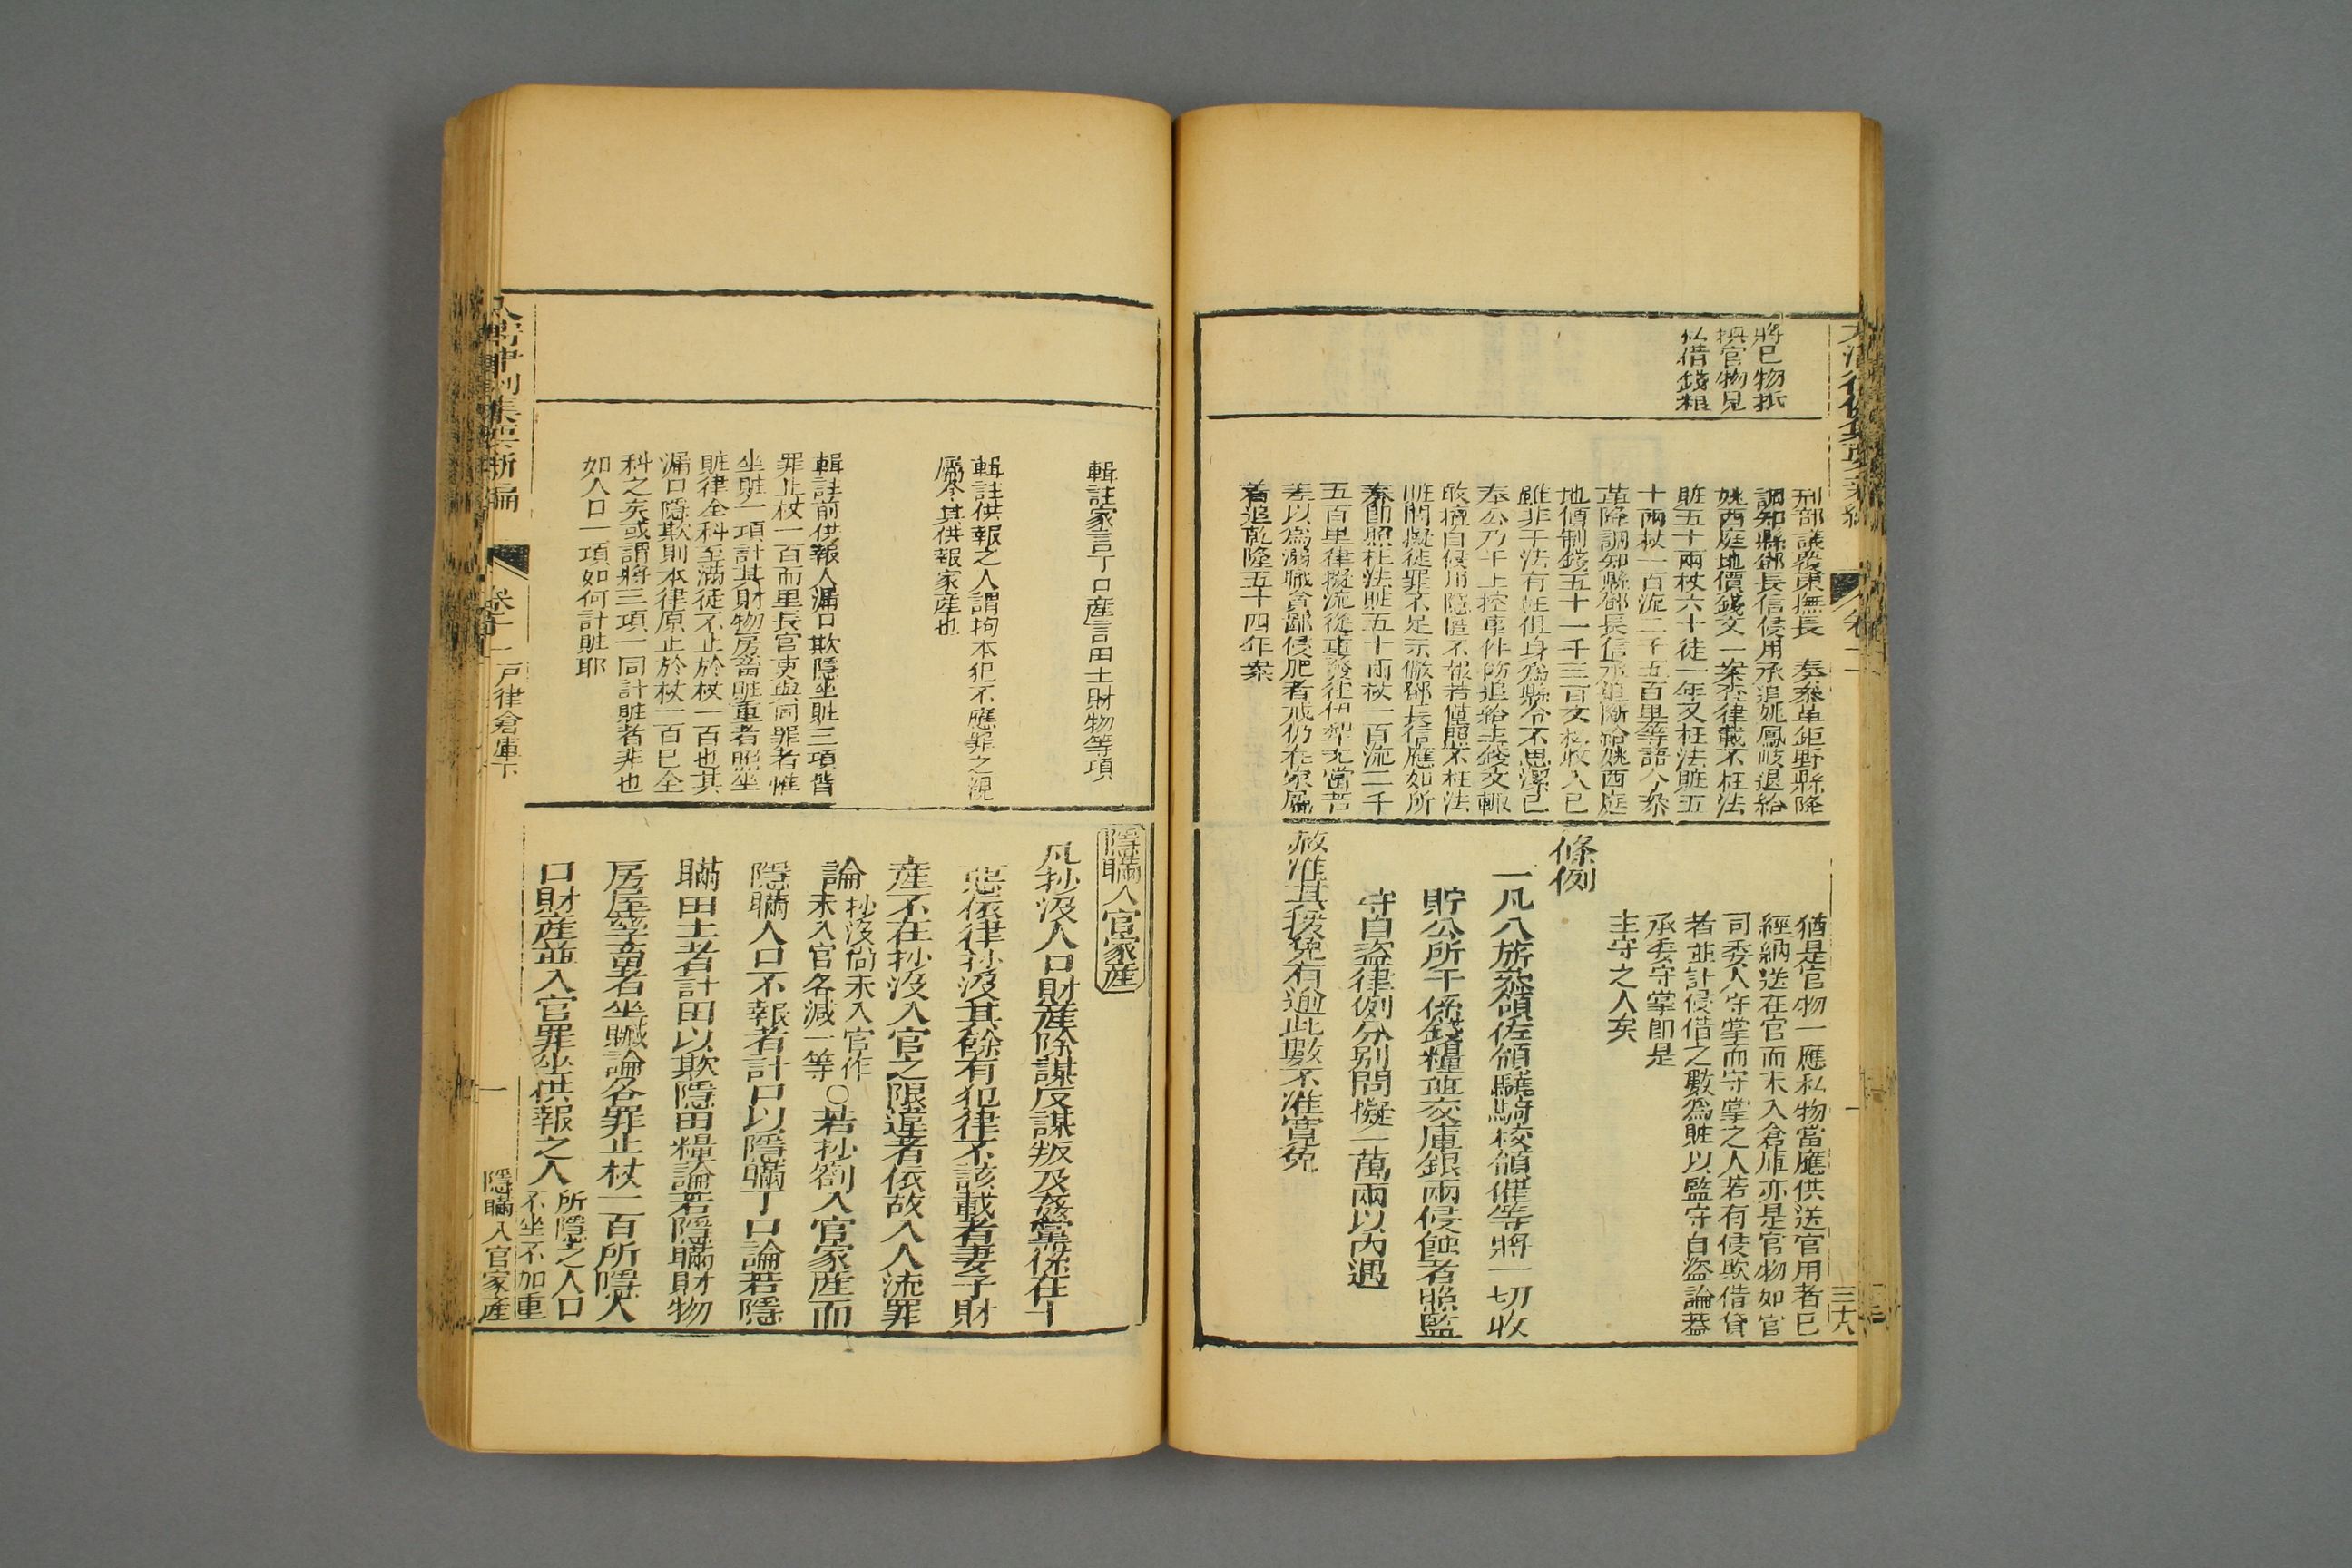 將已物抵
換官物見
私借錢糧
刑部議覆東撫長 奏叅革鉅野縣降
調知縣鄒長信侵用承追姚鳳岐退給
姚西庭地價錢文一案查律載不枉法
賍五十兩杖六十徒一年又枉法賍五
十兩杖一百流二千五百里等語今叅
革降調知縣鄒長信承追斷給姚西庭
地價制錢五十一千三百文私收入已
雖非于法有枉但身爲縣令不思潔已
奉公乃于上控事件飭追給主錢文輒
敢擅自侵用隱匿不報若僅照不枉法
賍問擬徒罪不足示儆鄒長信應如所
奏即照枉法賍五十兩杖一百流二千
五百里律擬流從重發往伊犂充當苦
差以爲溺職貪鄙侵肥者戒仍在家屬
着追乾隆五十四年案
猶是官物一應私物當應供送官用者已
經納送在官而未入倉庫亦是官物如官
司委人守掌而守掌之人若有侵欺借貸
者並計侵借之數爲賍以監守自盜論葢
承委守掌卽是
主守之人矣
條例
一凡八旂叅領佐領驍騎校領催等將一切收
貯公所干係錢糧並交庫銀兩侵蝕者照監
守自盜律例分別問擬一萬兩以內遇
赦准其援免有逾此數不准寬免
三十八
輯註家言丁口產言田土財物等項
輯註供報之人謂拘本犯不應罪之親
屬令其供報家產也
輯註前供報人漏口欺隱坐賍三項皆
罪止杖一百而里長官吏與同罪者惟
坐賍一項計其財物房畜賍重者照坐
賍律全科至滿徒不止於杖一百也其
漏口隱欺則本律原止於杖一百已全
科之矣或謂將三項一同計賍者非也
如人口一項如何計賍耶
隱瞞入官家產
凡抄没人口財產除謀反謀叛及奸黨係在十
惡依律抄没其餘有犯律不該載者妻子財
產不在抄没入官之限違者依故入人流罪
論抄没尙未入官作未入官各減一等〇若抄劄入官家產而
隱瞞人口不報者計口以隱瞞丁口論若隱
瞞田土者計田以欺隱田糧論若隱瞞財物
房屋孳畜者坐贓論各罪止杖一百所隱人
口財產並入官罪坐供報之人所隱之人口不坐不加重
大淸律例集要新編
卷十一
戶律倉庫下
一
隱瞞入官家產